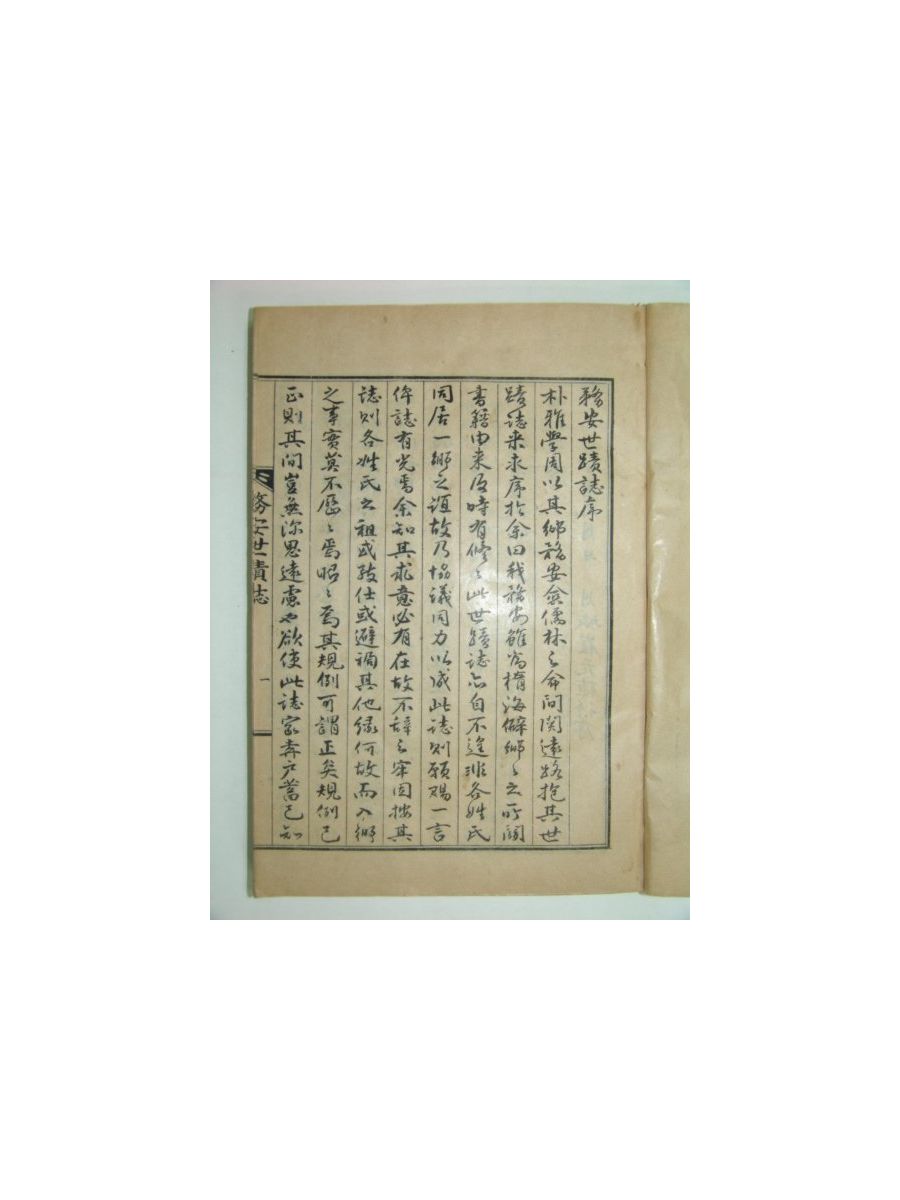 務安世蹟誌序
朴雅學周以其鄉務安僉儒林之命間関遠路抱其世
蹟誌来求序於余曰我務安雖為楕海僻鄉鄉之所関
書籍由来及時有修修此世蹟誌亦自不逞非各姓氏
同居一鄉之誼故乃恊議同力以成此誌則願賜一言
俾誌有光焉余知其求意必有在故不辞之牢因按其
誌則各姓氏之祖或致仕或避禍其他縁何故而入鄉
之事實莫不歷歷焉昭昭焉其規例可謂正矣規例已
正則其間豈無深思遠慮也欲使此誌家弆戶蓄已知
務安世蹟誌
一